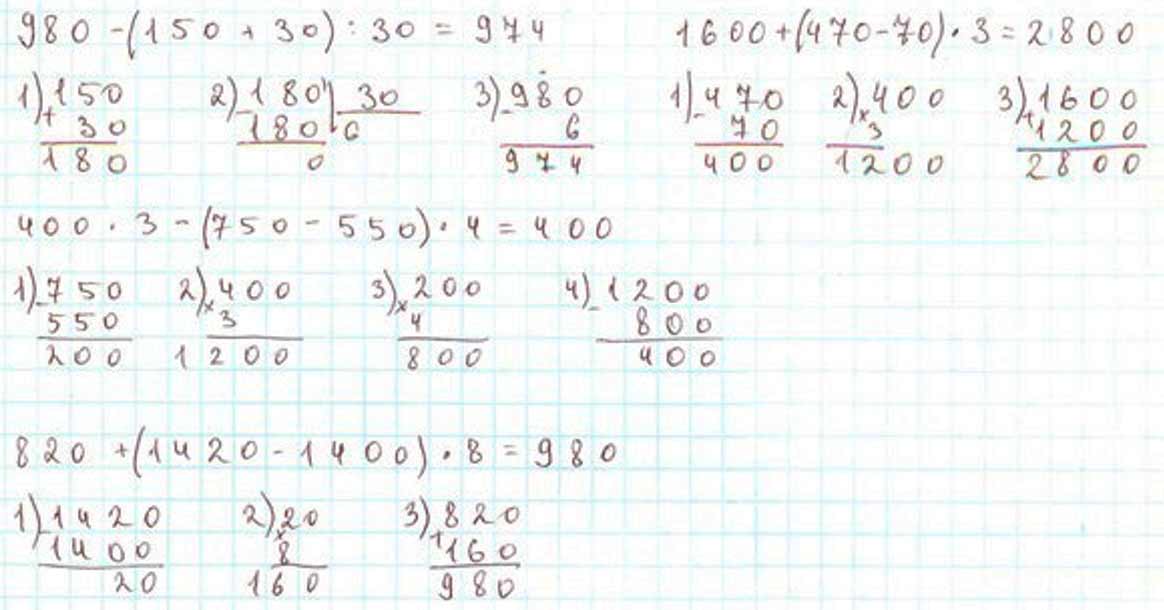 980 - (150 + 30) : 30 = 974
1600 + (470 - 70) · 3 = 2800
1) 150
+ 30
180
2) - 180 | 30
180 | 6
0
3) - 980
6
974
1) - 470
70
400
2) × 400
3
1200
3) + 1600
1200
2800
400 · 3 - (750 - 550) · 4 = 400
1) - 750
550
200
2) × 400
3
1200
3) × 200
4
800
4) - 1200
800
400
820 + (1420 - 1400) · 8 = 980
1) - 1420
1400
20
2) × 20
8
160
3) + 820
160
980